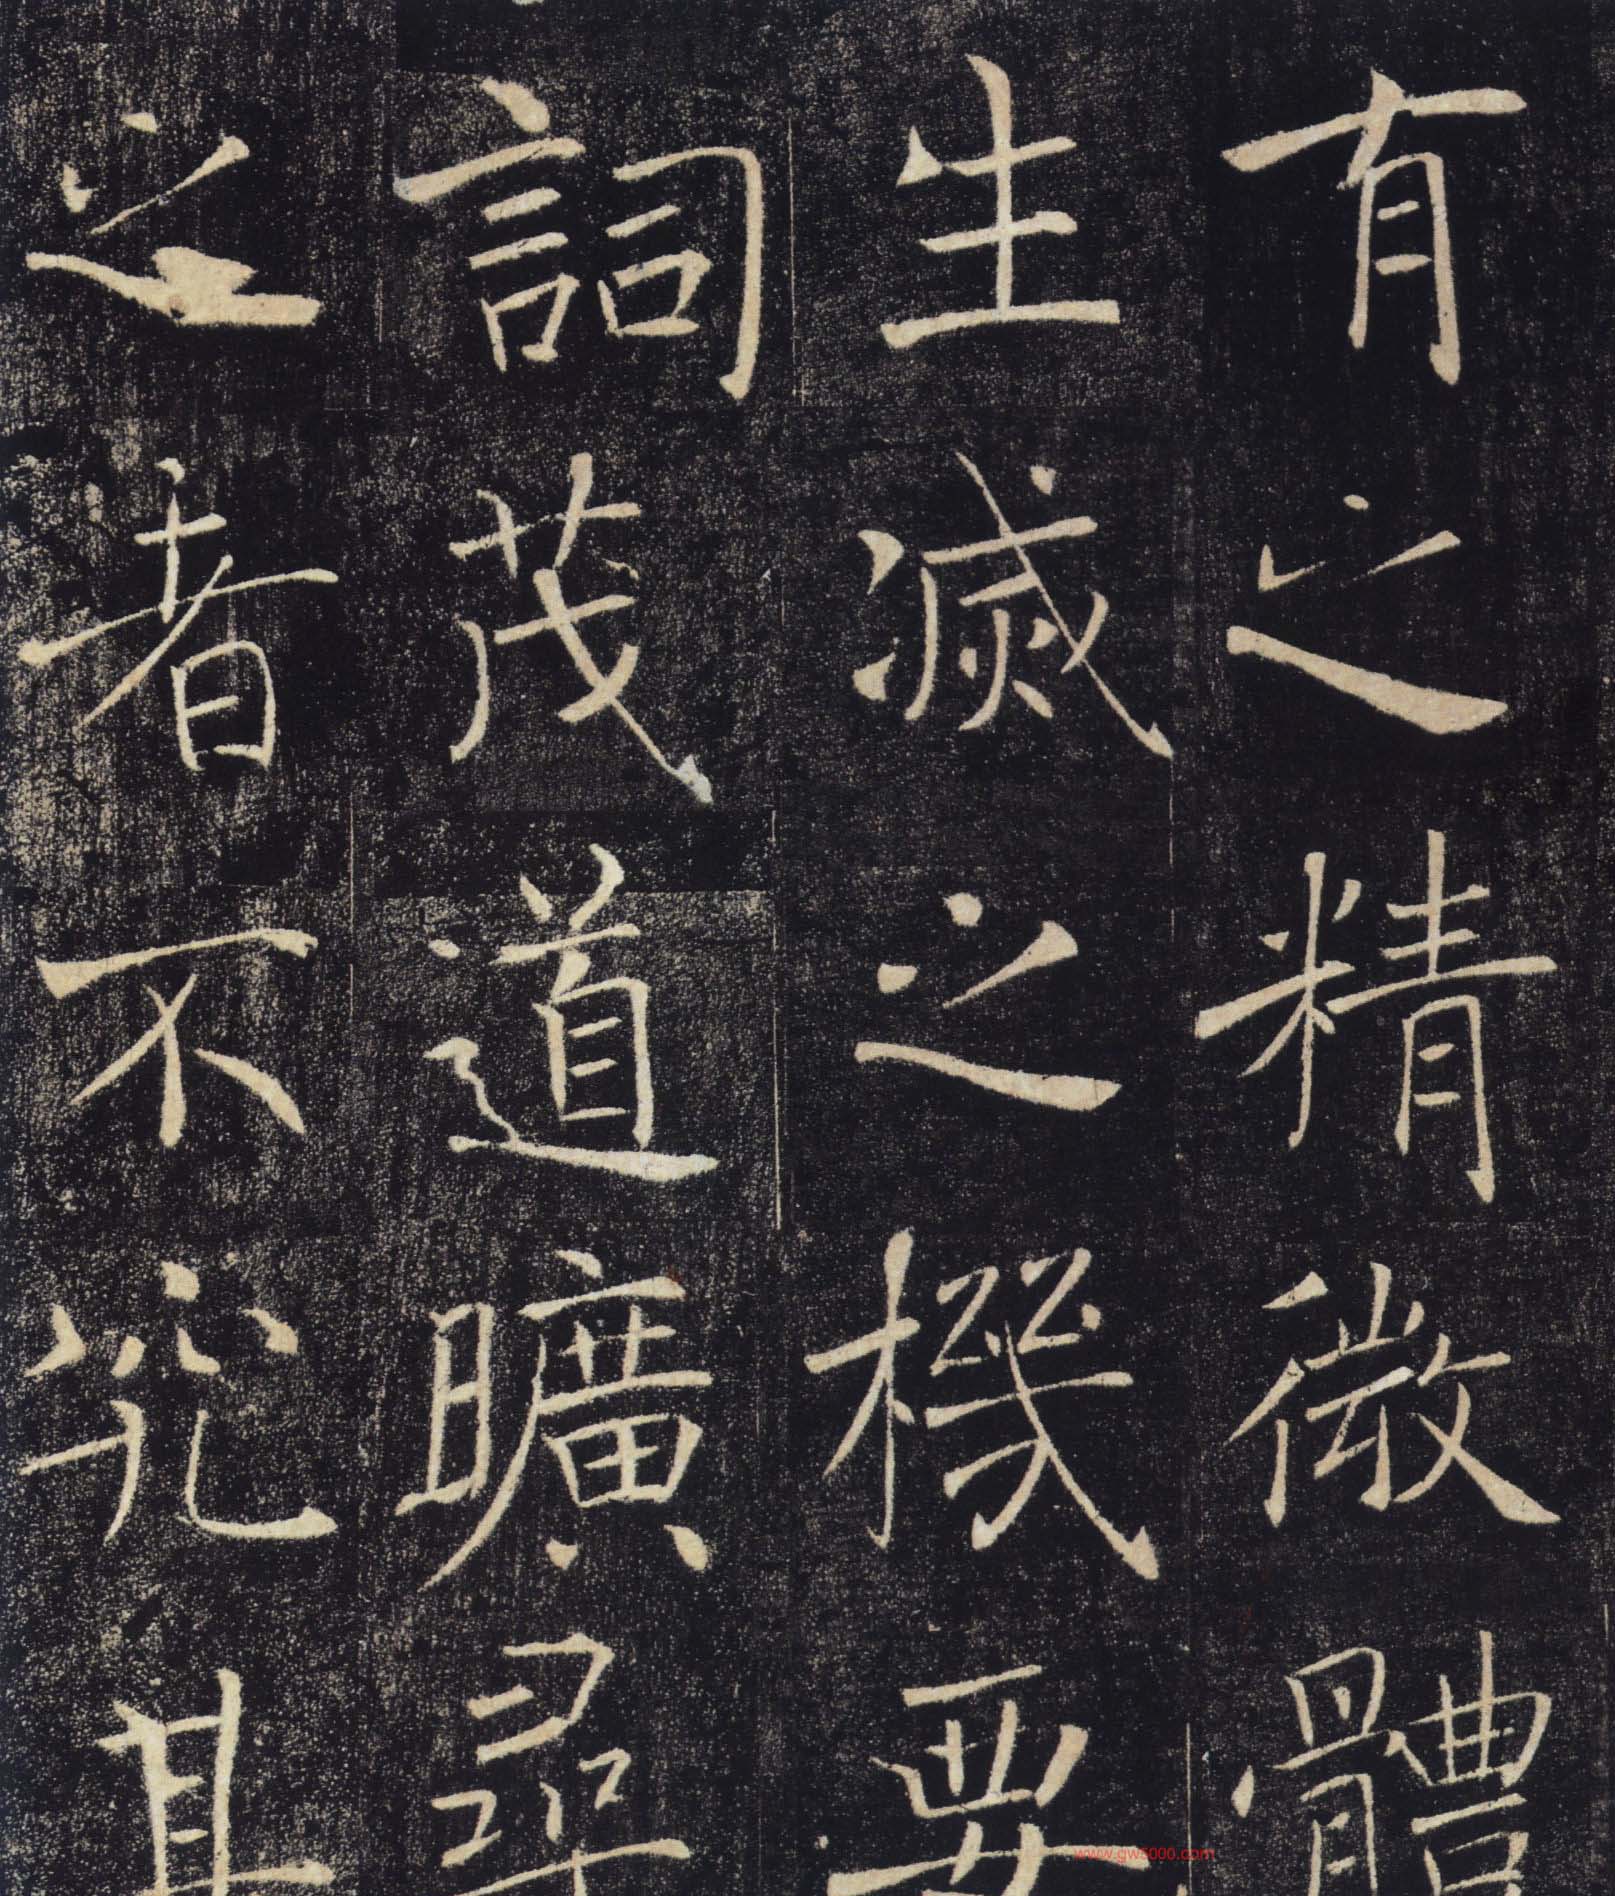 有之精微體
生滅之機要
詞茂道曠尋
之者不究其
www.gw5000.com